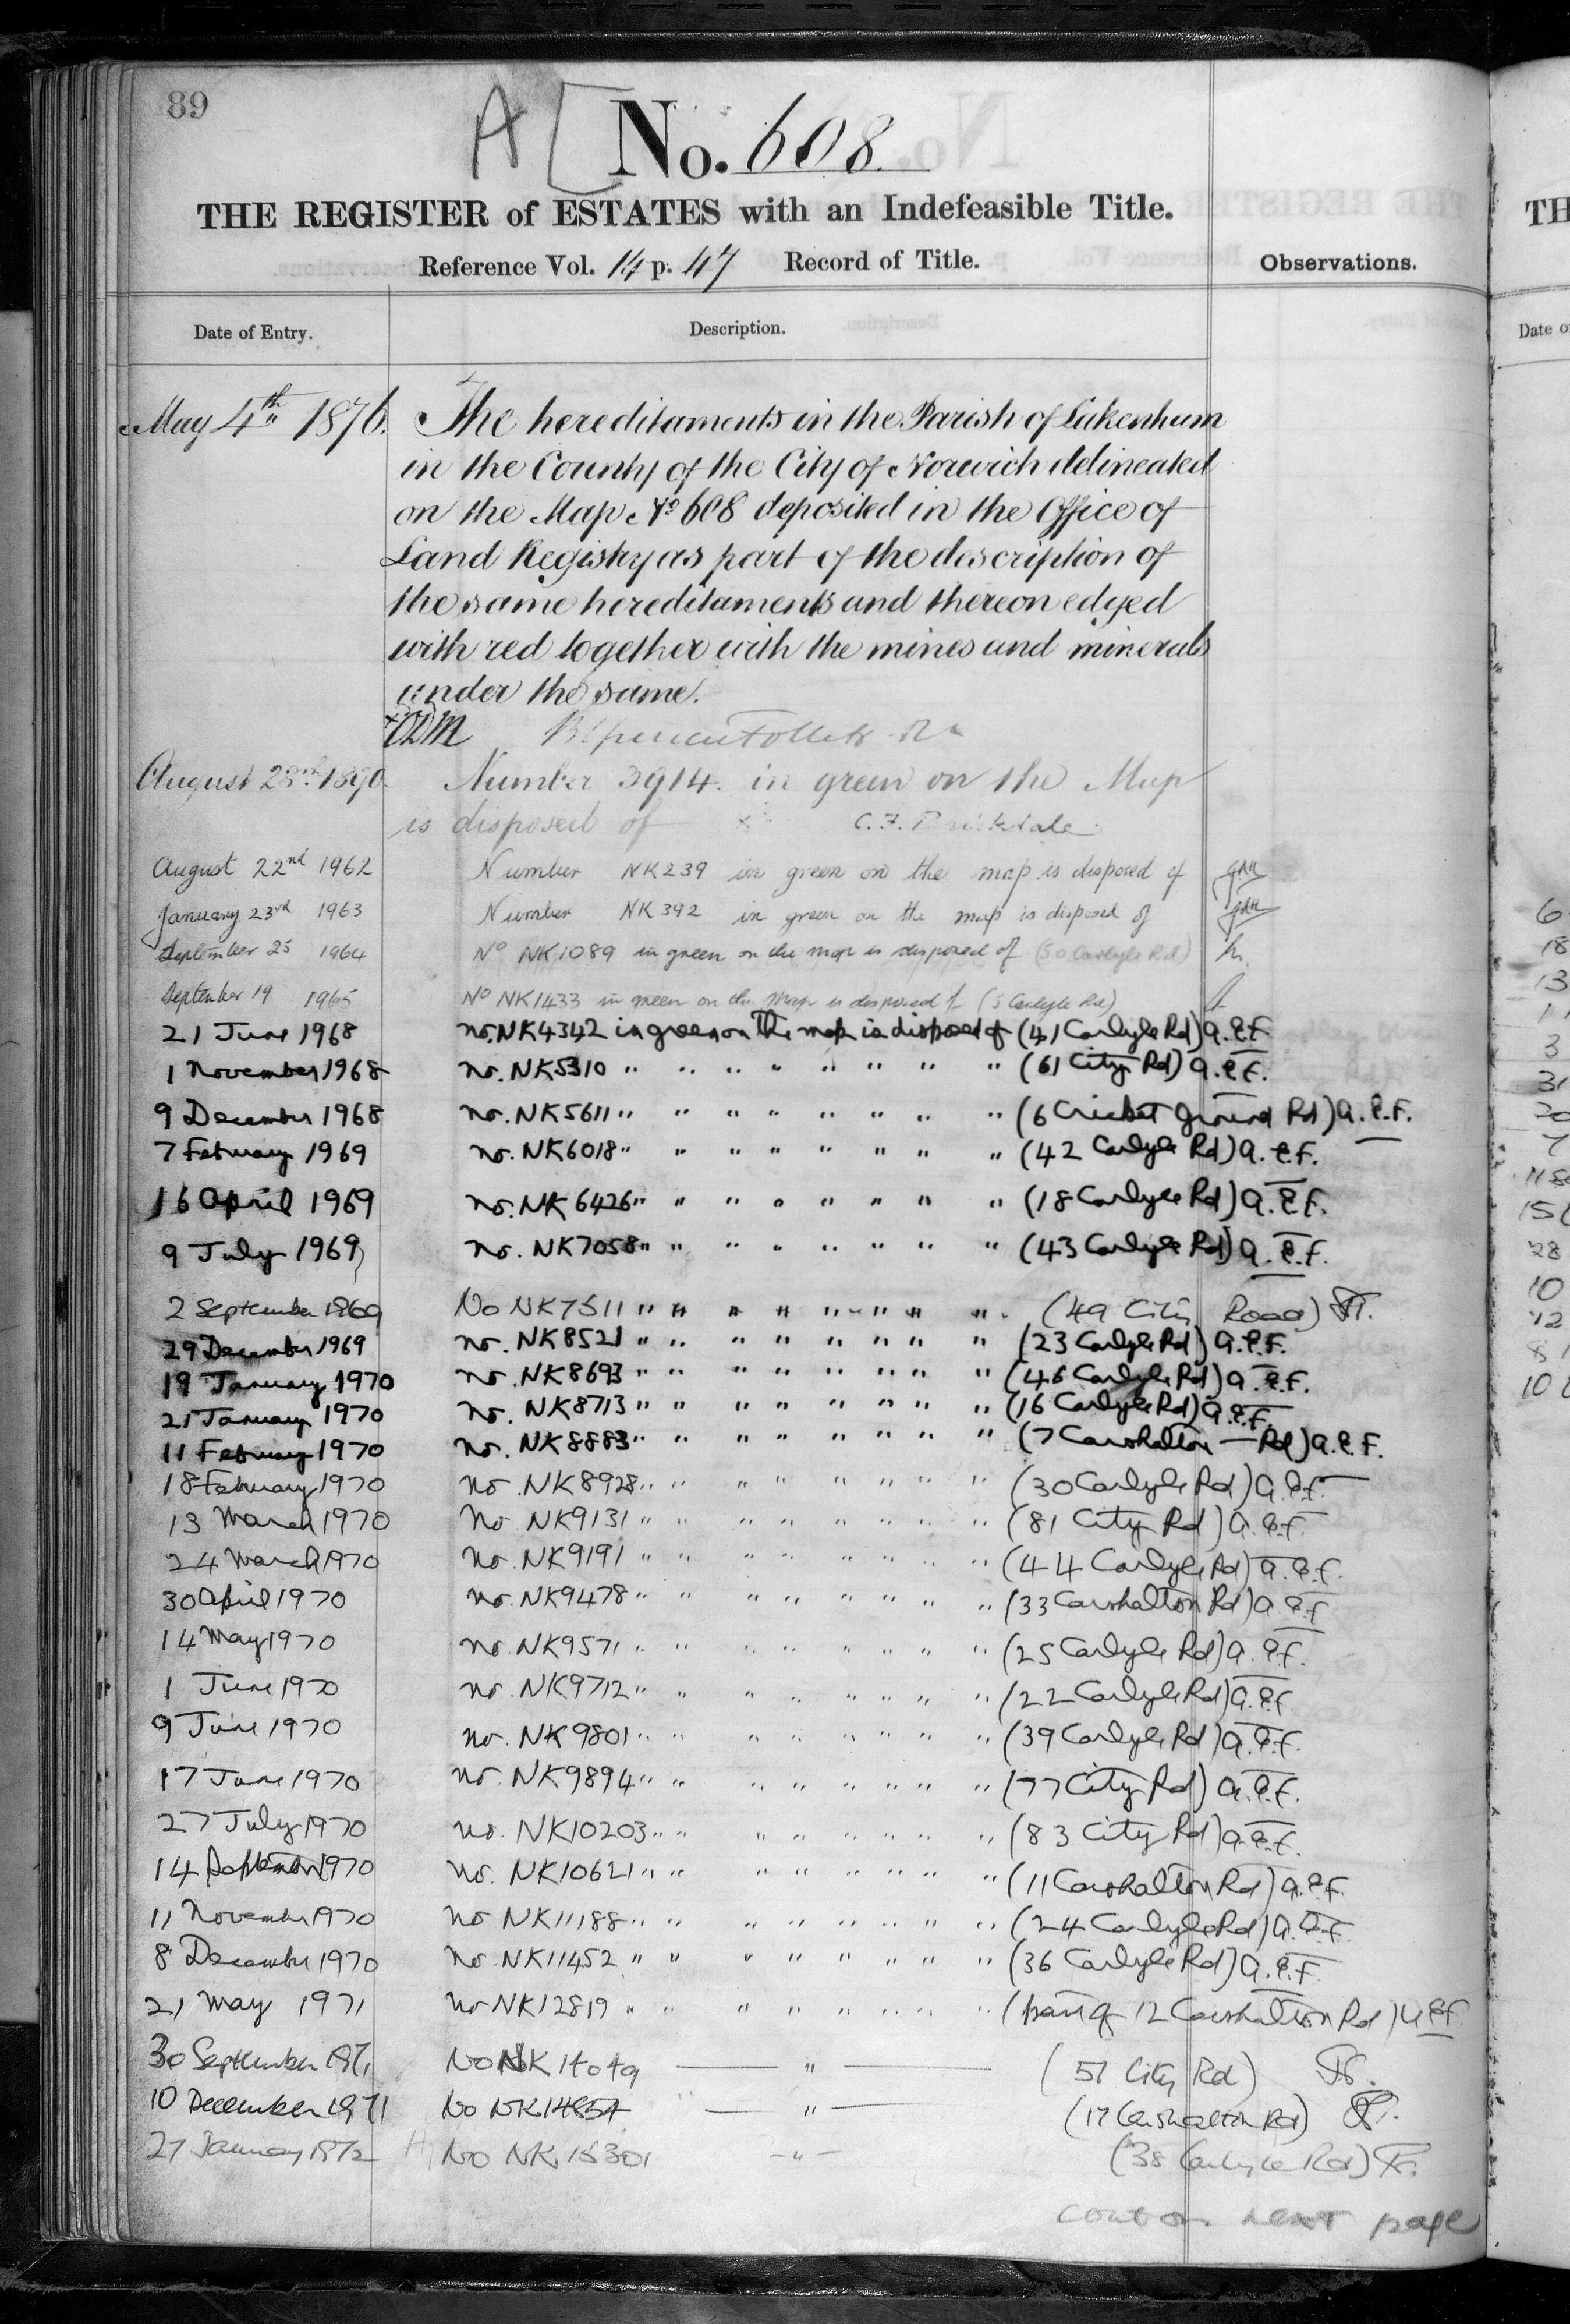 89
A [ No. 608.
THE REGISTER of ESTATES with an Indefeasible Title.
Reference Vol. 14 p. 47 Record of Title.
Observations.
Date of Entry.
Description.
May 4th 1876. The hereditaments in the Parish of Lakenham
in the County of the City of Norwich delineated
on the Map No 608 deposited in the Office of
Land Registry as part of the description of
the same hereditaments and thereon edged
with red together with the mines and minerals
under the same.
August 28th 1890. Number 3914. in green on the Map
is disposed of C. F. Brickdale
August 22nd 1962 Number NK239 in green on the map is disposed of
January 23rd 1963 Number NK392 in green on the map is disposed of
September 25 1964 No NK1089 in green on the map is disposed of (50 Carlyle Rd)
September 19 1965 No NK1433 in green on the map is disposed of (5 Carlyle Rd)
21 June 1968 no. NK4342 in green on the map is disposed of (41 Carlyle Rd) a.e.f.
1 November 1968 no. NK5310 " " " " " " " " (61 City Rd) a.e.f.
9 December 1968 no. NK5611 " " " " " " " " (6 Cricket Ground Rd) a.e.f.
7 February 1969 no. NK6018 " " " " " " " " (42 Carlyle Rd) a.e.f.
16 April 1969 no. NK6426 " " " " " " " " (18 Carlyle Rd) a.e.f.
9 July 1969 no. NK7058 " " " " " " " " (43 Carlyle Rd) a.e.f.
2 September 1969 No NK7511 " " " " " " " " (49 City Road)
29 December 1969 no. NK8521 " " " " " " " " (23 Carlyle Rd) a.e.f.
19 January 1970 no. NK8693 " " " " " " " " (46 Carlyle Rd) a.e.f.
21 January 1970 no. NK8713 " " " " " " " " (16 Carlyle Rd) a.e.f.
11 February 1970 no. NK8883 " " " " " " " " (7 Carshalton Rd) a.e.f.
18 February 1970 no. NK8928 " " " " " " " " (30 Carlyle Rd) a.e.f.
13 March 1970 no. NK9131 " " " " " " " " (81 City Rd) a.e.f.
24 March 1970 no. NK9191 " " " " " " " " (44 Carlyle Rd) a.e.f.
30 April 1970 no. NK9478 " " " " " " " " (33 Carshalton Rd) a.e.f.
14 May 1970 no. NK9571 " " " " " " " " (25 Carlyle Rd) a.e.f.
1 June 1970 no. NK9712 " " " " " " " " (22 Carlyle Rd) a.e.f.
9 June 1970 no. NK9801 " " " " " " " " (39 Carlyle Rd) a.e.f.
17 June 1970 no. NK9894 " " " " " " " " (77 City Rd) a.e.f.
27 July 1970 no. NK10203 " " " " " " " " (83 City Rd) a.e.f.
14 September 1970 no. NK10621 " " " " " " " " (11 Carshalton Rd) a.e.f.
11 November 1970 no NK11188 " " " " " " " " (24 Carlyle Rd) a.e.f.
8 December 1970 no. NK11452 " " " " " " " " (36 Carlyle Rd) a.e.f.
21 May 1971 no NK12819 " " " " " " " " (part of 12 Carshalton Rd) a.e.f.
30 September 1971 No NK 14049 — " — (51 City Rd)
10 December 1971 No NK14857 — " — (17 Carshalton Rd)
27 January 1972 No NK 15301 - " - (38 Carlyle Rd)
cont on next page
TH
Date o